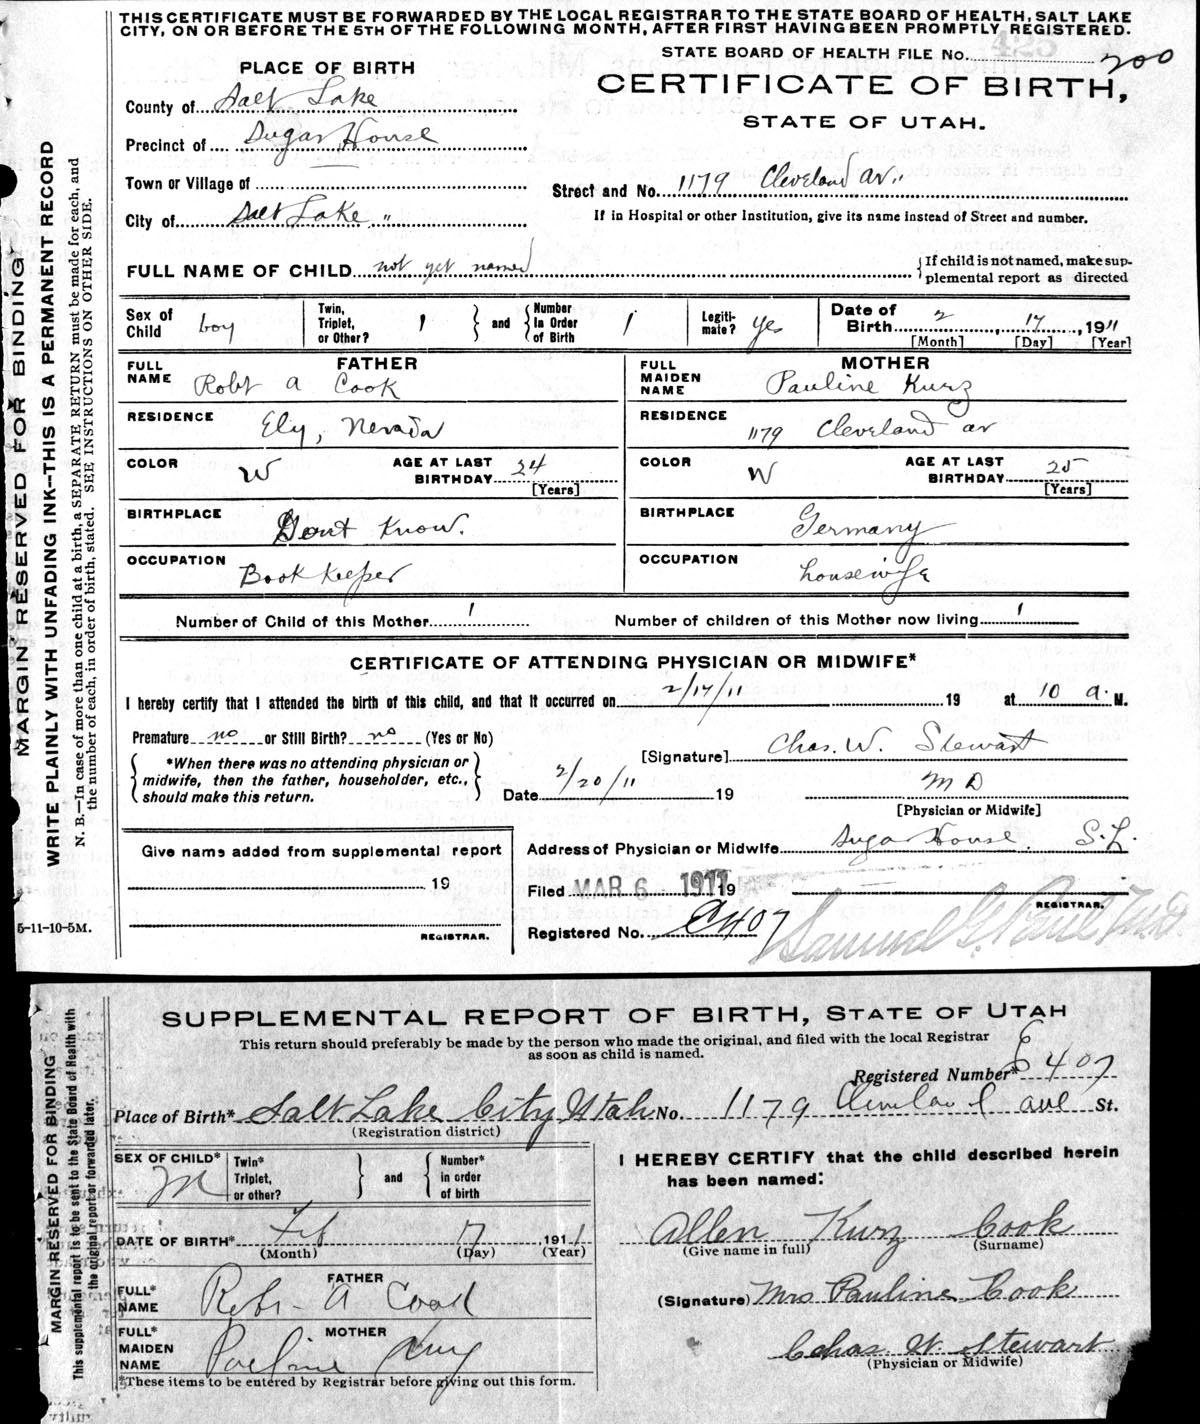 THIS CERTIFICATE MUST BE FORWARDED BY THE LOCAL REGISTRAR TO THE STATE BOARD OF HEALTH, SALT LAKE
CITY, ON OR BEFORE THE 5TH OF THE FOLLOWING MONTH, AFTER FIRST HAVING BEEN PROMPTLY REGISTERED.
STATE BOARD OF HEALTH FILE No. 425 200
PLACE OF BIRTH
CERTIFICATE OF BIRTH,
STATE OF UTAH.
County of Salt Lake
Precinct of Sugar House
Town or Village of
Street and No. 1179 Cleveland av.
City of Salt Lake "
If in Hospital or other Institution, give its name instead of Street and number.
FULL NAME OF CHILD not yet named
If child is not named, make sup-
plemental report as directed
Sex of Child boy
Twin, Triplet, or Other? 1 and Number In Order of Birth 1
Legiti-mate? yes
Date of Birth 2, 17, 1911
[Month] [Day] [Year]
FATHER
FULL NAME Robt a Cook
RESIDENCE Ely, Nevada
COLOR W AGE AT LAST BIRTHDAY 24
[Years]
BIRTHPLACE Dont Know.
OCCUPATION Book Keeper
MOTHER
FULL MAIDEN NAME Pauline Kurz
RESIDENCE 1179 Cleveland av
COLOR W AGE AT LAST BIRTHDAY 25
[Years]
BIRTHPLACE Germany
OCCUPATION housewife
Number of Child of this Mother 1 Number of children of this Mother now living 1
CERTIFICATE OF ATTENDING PHYSICIAN OR MIDWIFE*
I hereby certify that I attended the birth of this child, and that it occurred on 2/17/11 19 at 10 a. M.
Premature no or Still Birth? no (Yes or No)
*When there was no attending physician or
midwife, then the father, householder, etc.,
should make this return.
[Signature] Chas. W. Stewart
Date 2/20/11 19 M D
[Physician or Midwife]
Give name added from supplemental report
19
REGISTRAR.
Address of Physician or Midwife Sugar House. S.L.
Filed MAR 6 - 1911 19
REGISTRAR.
Registered No. C407 Samuel G. Paul M.D.
5-11-10-5M.
MARGIN RESERVED FOR BINDING
WRITE PLAINLY WITH UNFADING INK—THIS IS A PERMANENT RECORD
N. B.—In case of more than one child at a birth, a SEPARATE RETURN must be made for each, and
the number of each, in order of birth, stated. SEE INSTRUCTIONS ON OTHER SIDE.
SUPPLEMENTAL REPORT OF BIRTH, STATE OF UTAH
This return should preferably be made by the person who made the original, and filed with the local Registrar
as soon as child is named.
Registered Number* C 407
Place of Birth* Salt Lake City Utah No. 1179 Cleveland ave St.
(Registration district)
SEX OF CHILD* M
Twin* Triplet, or other? and Number* in order of birth
DATE OF BIRTH* Feb 17 1911
(Month) (Day) (Year)
FATHER
FULL* NAME Robt A Cook
MOTHER
FULL* MAIDEN NAME Pauline Kurz
*These items to be entered by Registrar before giving out this form.
I HEREBY CERTIFY that the child described herein
has been named:
Allen Kurz Cook
(Give name in full) (Surname)
(Signature) Mrs Pauline Cook
Chas. W. Stewart
(Physician or Midwife)
MARGIN RESERVED FOR BINDING
This supplemental report is to be sent to the State Board of Health with
the original report or forwarded later.